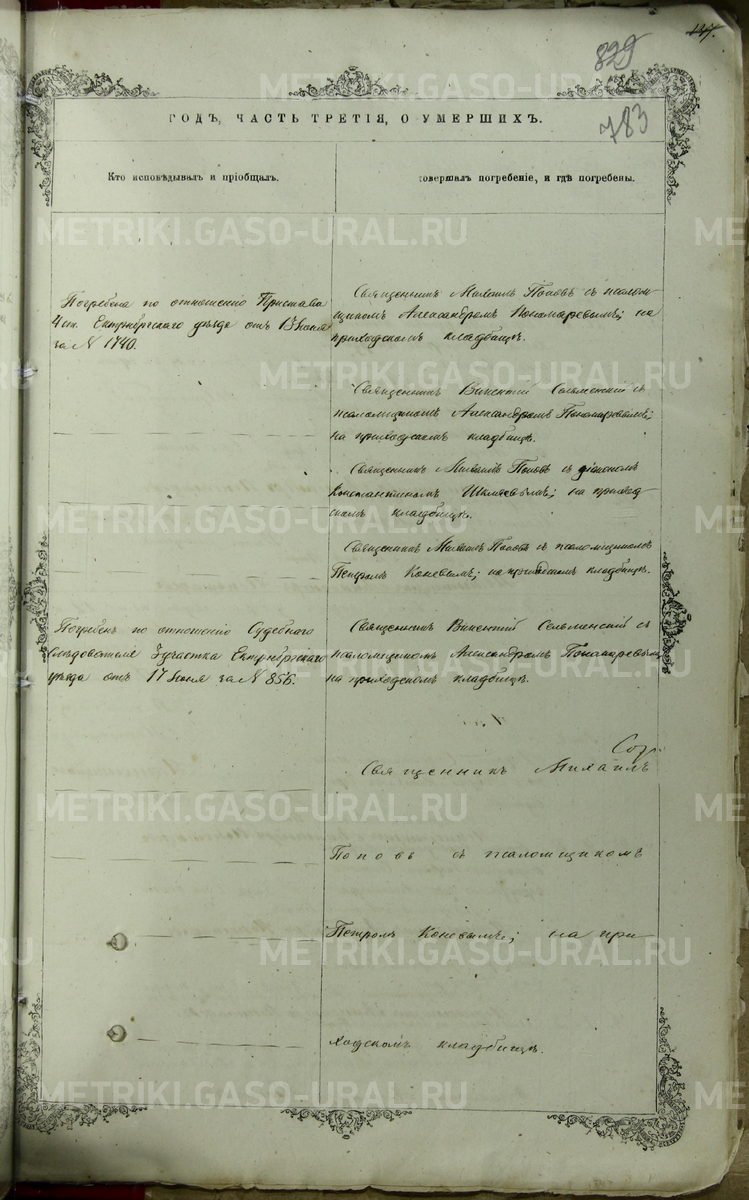 147.
829
783
ГОДЪ, ЧАСТЬ ТРЕТІЯ, О УМЕРШИХЪ.
Кто исповѣдывалъ и пріобщалъ.
совершалъ погребеніе, и гдѣ погребены.
Погребена по отношенію Пристава
4 ст. Екатунбргскаго уѣзда отъ 13 Іюня
за № 1740.
Священникъ Михаилъ Поповъ съ псалом-
щикомъ Александромъ Пономаревымъ; на
приходскомъ кладбищѣ.
Священникъ Викентій Сельменскій съ
псаломщикомъ Александромъ Пономаревымъ;
на приходскомъ кладбищѣ.
Священникъ Михаилъ Поповъ съ діакономъ
Константиномъ на приход-
скомъ кладбищѣ.
Священникъ Михаилъ Поповъ съ псаломщикомъ
Петромъ Коневымъ; на приходскомъ кладбищѣ.
Погребенъ по отношенію Судебнаго
слѣдователя 3 участка Екатунбргскаго
уѣзда отъ 17 Іюня за № 856.
Священникъ Викентій Сельменскій съ
псаломщикомъ Александромъ Пономаревымъ
на приходскомъ кладбищѣ.
Священникъ Михаилъ
Поповъ съ псаломщикомъ
Петромъ Коневымъ; на при-
ходскомъ кладбищѣ.
METRIKI.GASO-URAL.RU